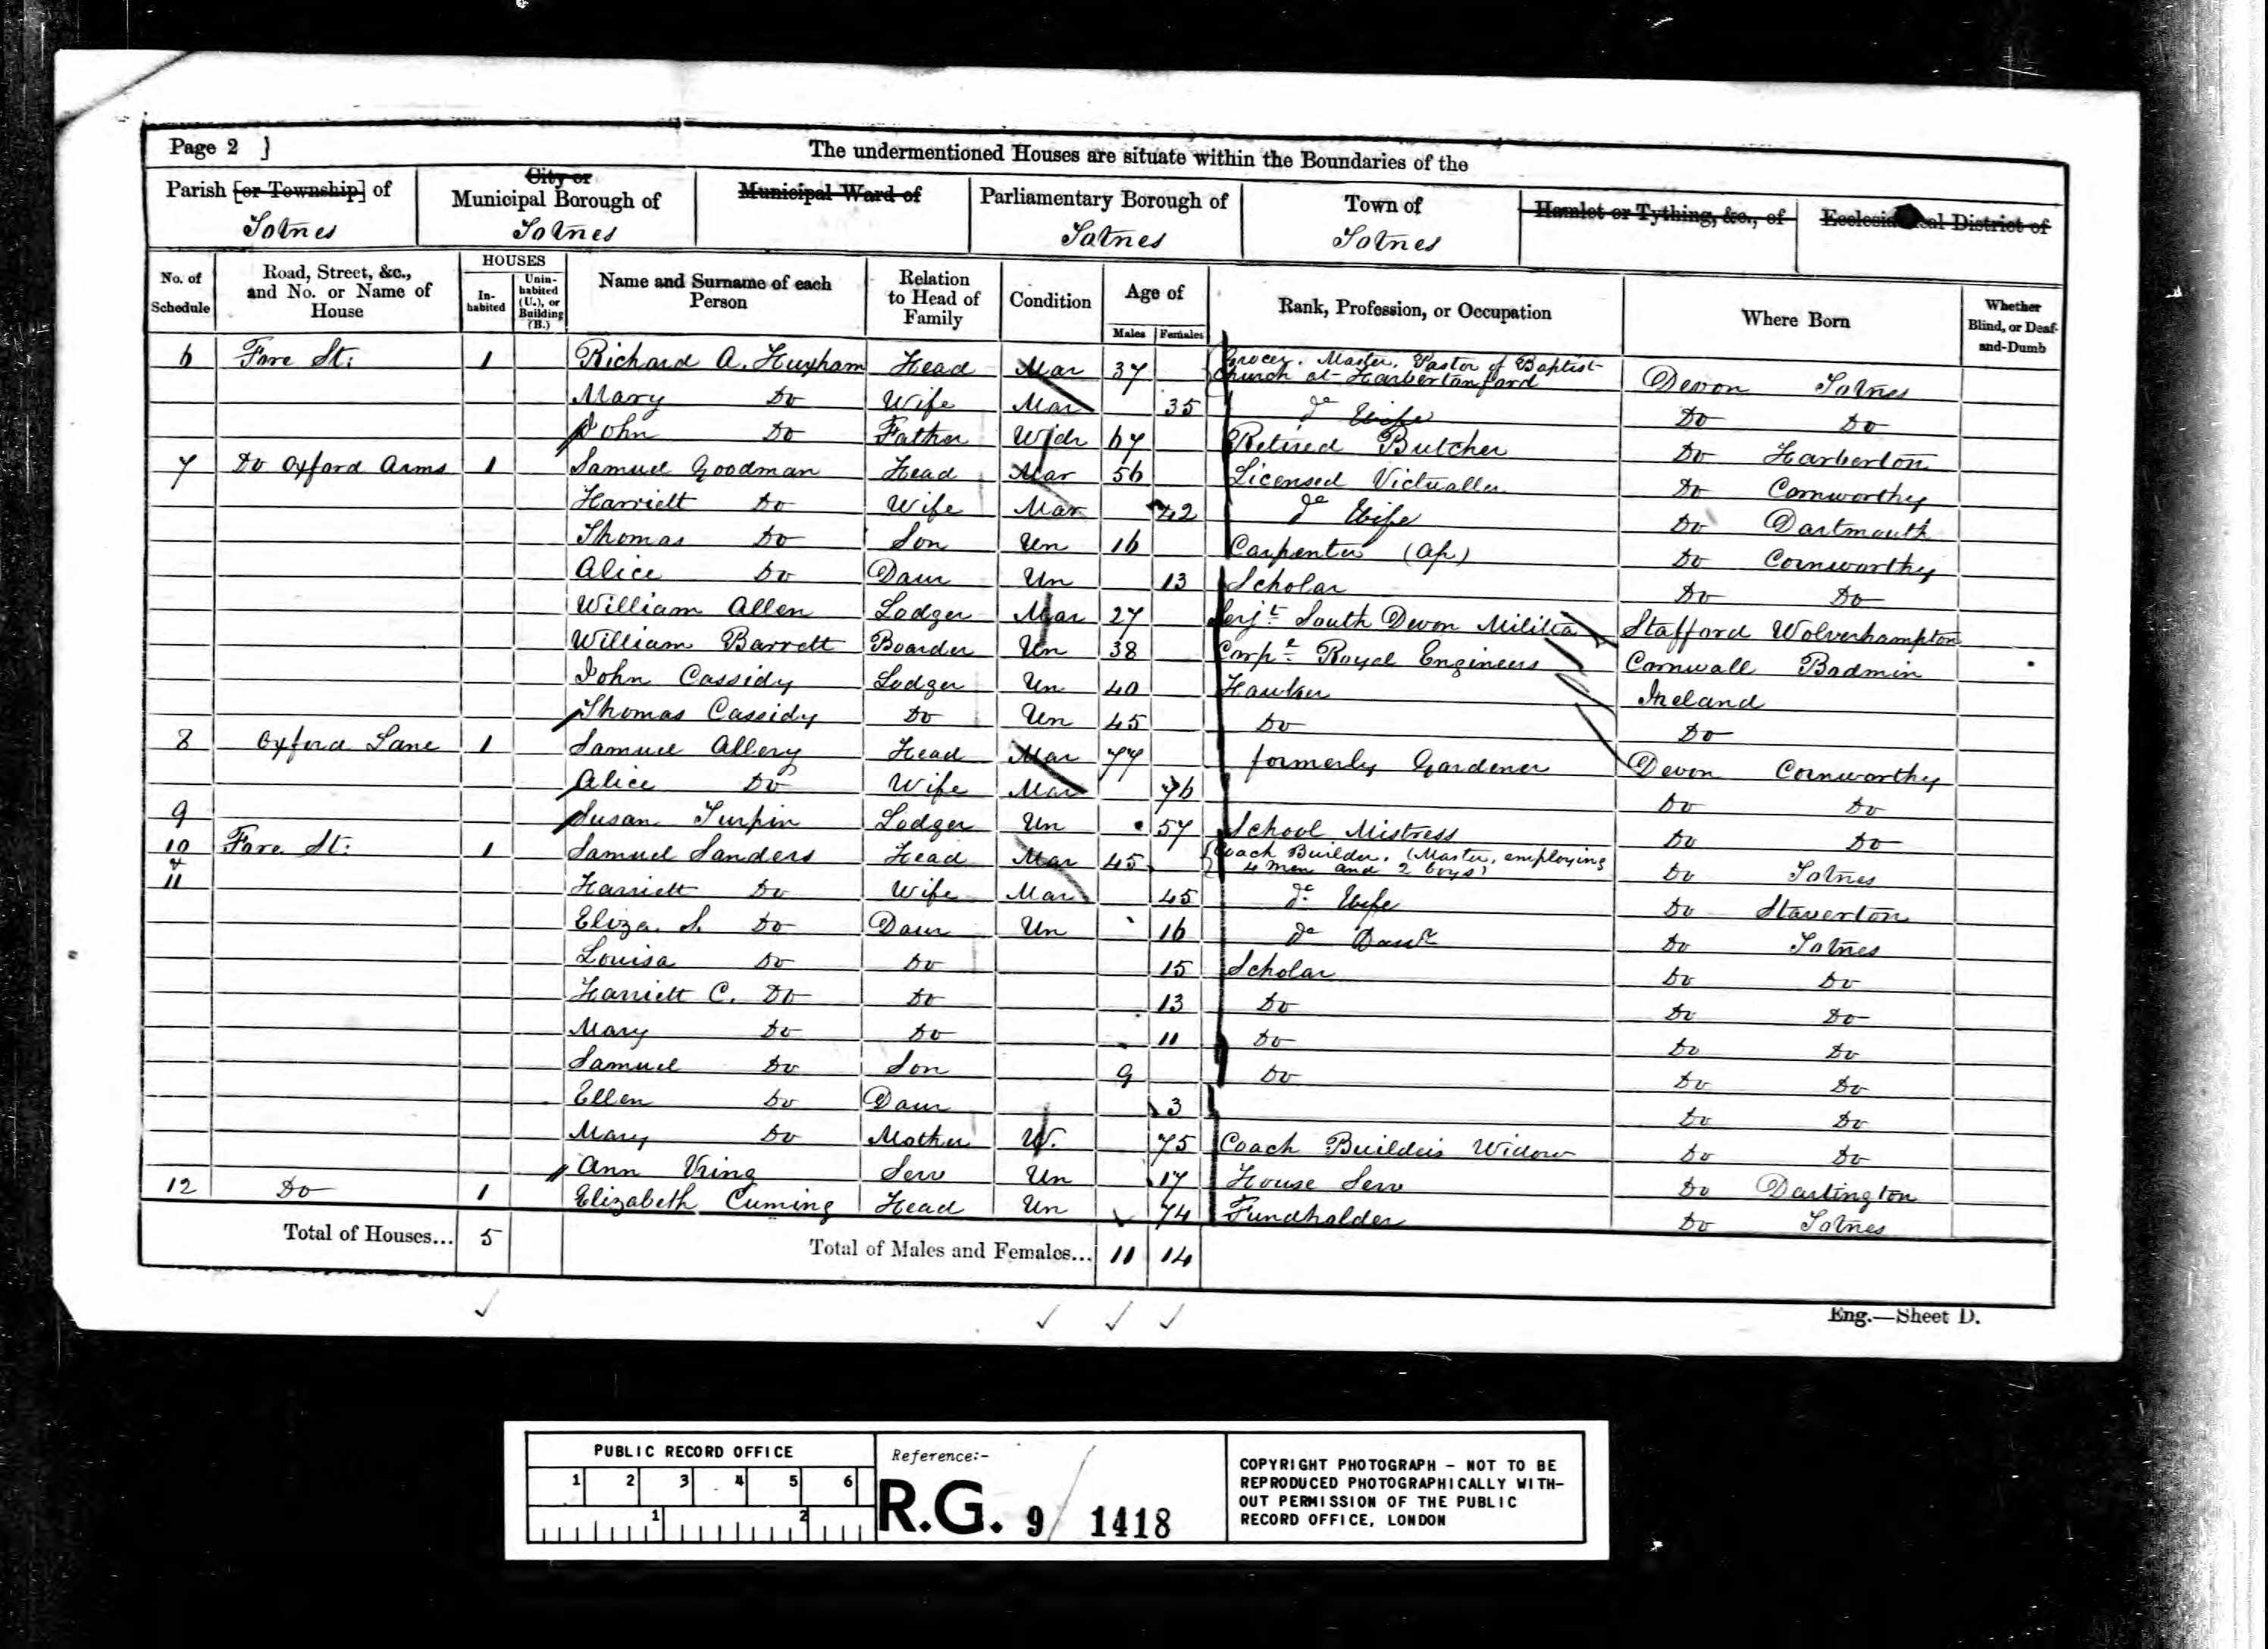 Page 2 ]
The undermentioned Houses are situate within the Boundaries of the
Parish [or Township] of Totnes
City or Municipal Borough of Totnes
Municipal Ward of
Parliamentary Borough of Totnes
Town of Totnes
Hamlet or Tything, &c., of
Ecclesiastical District of
No. of Schedule
Road, Street, &c., and No. or Name of House
HOUSES
In-habited
Unin-habited (U.), or Building (B.)
Name and Surname of each Person
Relation to Head of Family
Condition
Age of
Males
Females
Rank, Profession, or Occupation
Where Born
Whether Blind, or Deaf-and-Dumb
6 Fore St: 1 Richard A. Huxham Head Mar 37 Grocer. Master. Pastor of Baptist Church at Harbertonford Devon Totnes
Mary Do Wife Mar 35 do Wife Do Do
John Do Father Widr 67 Retired Butcher Do Harberton
7 Do Oxford Arms 1 Samuel Goodman Head Mar 56 Licensed Victualler Do Cornworthy
Harriett Do Wife Mar 42 do Wife Do Dartmouth
Thomas Do Son Un 16 Carpenter (Ap) Do Cornworthy
Alice Do Daur Un 13 Scholar Do Do
William Allen Lodger Mar 27 Serjt South Devon Militia Stafford Wolverhampton
William Barrett Boarder Un 38 Corpl Royal Engineers Cornwall Bodmin
John Cassidy Lodger Un 40 Hawker Ireland
Thomas Cassidy Do Un 45 Do Do
8 Oxford Lane 1 Samuel Allery Head Mar 77 formerly Gardener Devon Cornworthy
Alice Do Wife Mar 76 Do Do
9 Susan Turpin Lodger Un 57 School Mistress Do Do
10 & 11 Fore St: 1 Samuel Sanders Head Mar 45 Coach Builder. (Master, employing 4 men and 2 boys) Do Totnes
Harriett Do Wife Mar 45 do Wife Do Staverton
Eliza S. Do Daur Un 16 do Daur Do Totnes
Louisa Do Do 15 Scholar Do Do
Harriett C. Do Do 13 Do Do Do
Mary Do Do 11 Do Do Do
Samuel Do Son 9 Do Do Do
Ellen Do Daur 3 Do Do
Mary Do Mother W. 75 Coach Builders Widow Do Do
Ann Vring Serv Un 17 House Serv Do Dartington
12 Do 1 Elizabeth Cuming Head Un 74 Fundholder Do Totnes
Total of Houses... 5
Total of Males and Females... 11 14
Eng.—Sheet D.
PUBLIC RECORD OFFICE
1 2 3 4 5 6
1 2
Reference:-
R.G. 9 / 1418
COPYRIGHT PHOTOGRAPH - NOT TO BE
REPRODUCED PHOTOGRAPHICALLY WITH-
OUT PERMISSION OF THE PUBLIC
RECORD OFFICE, LONDON